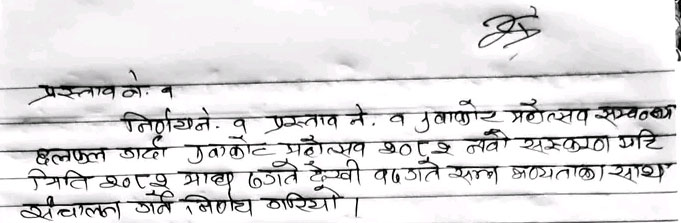 प्रस्ताव नं. १
निर्णय नं. १ प्रस्ताव नं. १ नुवाकोट महोत्सव सम्बन्धमा
छलफल गर्दा नुवाकोट महोत्सव २०८२ नवौं संस्करण यहि
मिति २०८२ माघ ७ गते देखी १७ गते सम्म भव्यताका साथ
संचालन गर्ने निर्णय गरियो ।